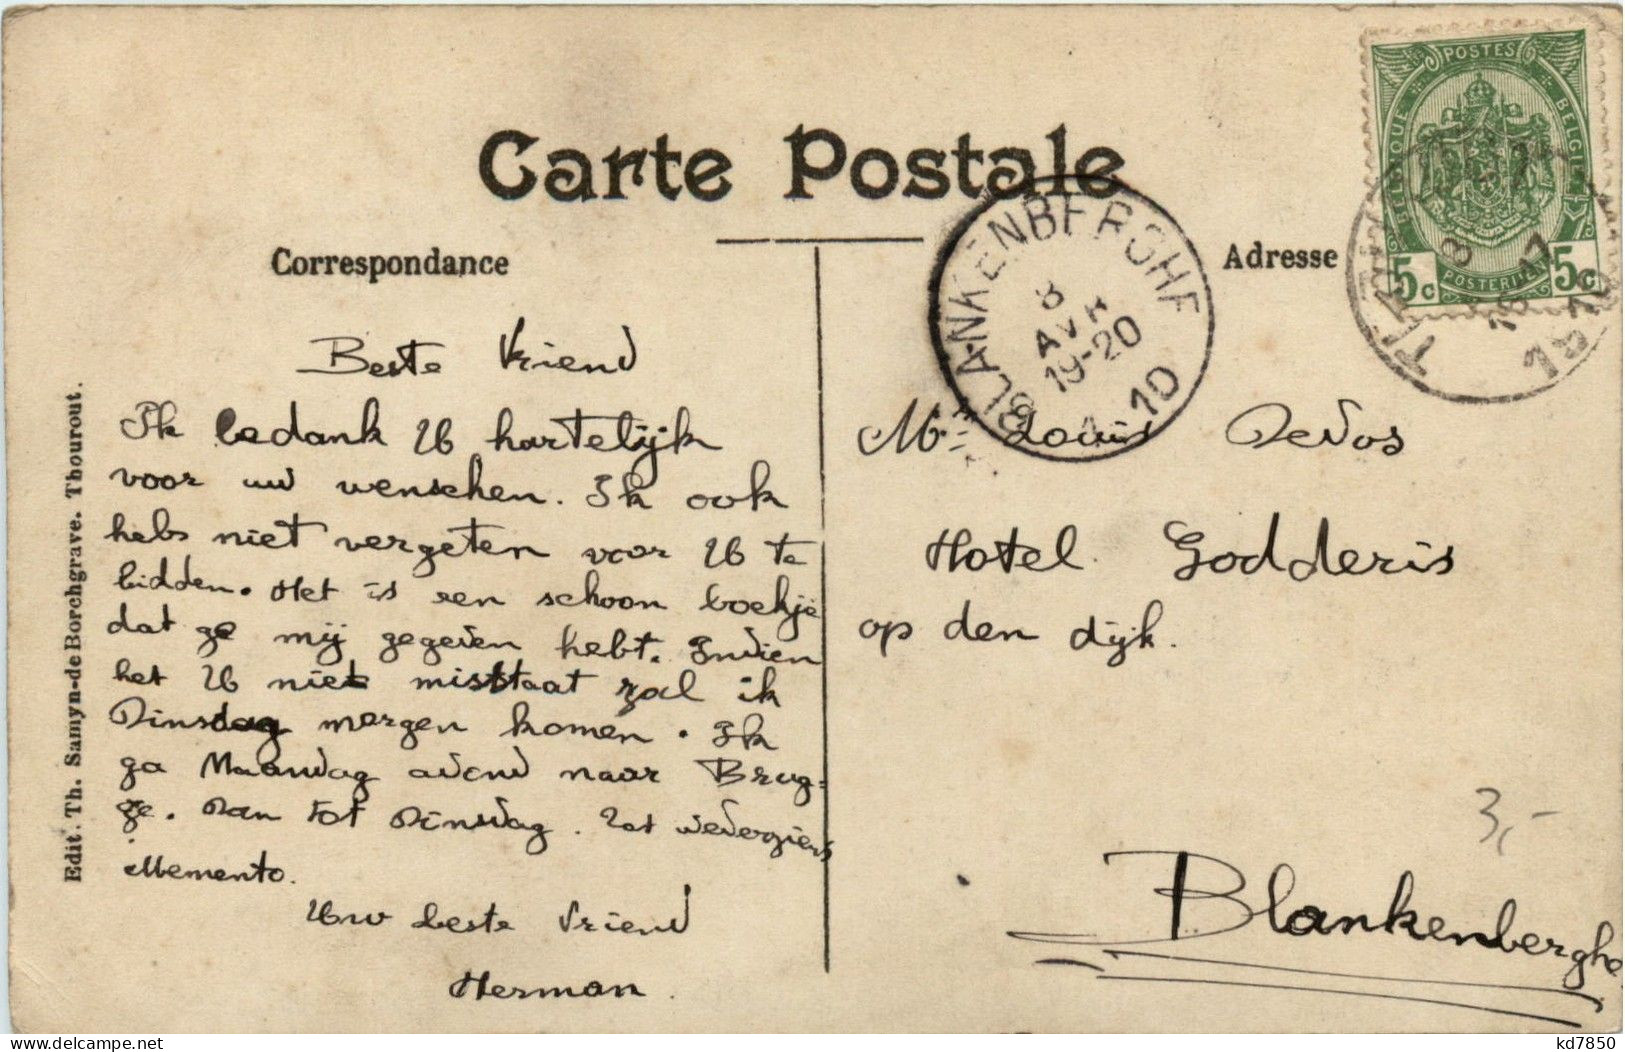 Carte Postale
Correspondance
Adresse
POSTES
BELGIQUE
BELGIE
5c POSTERIJEN 5c
BLANKENBERGHE
8
AVR
19-20
10
1910
Beste Vriend
Ik bedank U hartelijk
voor uw wenschen. Ik ook
heb niet vergeten voor U te
bidden. Het is een schoon boekje
dat ge mij gegeven hebt. Indien
het U niet misstaat zal ik
Dinsdag morgen komen. Ik
ga Maandag avond naar Brug=
ge. Dan tot Dinsdag. Tot wederziens
Memento.
Uw beste Vriend
Herman.
Mr Louis Devos
Hotel Godderis
op den dijk.
Blankenberghe
3,-
Edit. Th. Samyn-de Borchgrave. Thourout.
kd7850